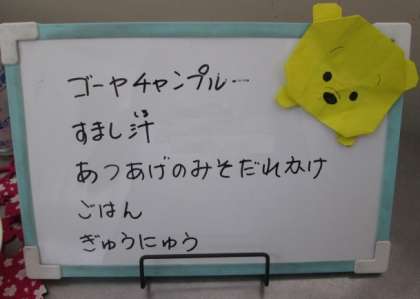 ゴーヤチャンプルー
すまし汁
じる
あつあげのみそだれかけ
ごはん
ぎゅうにゅう